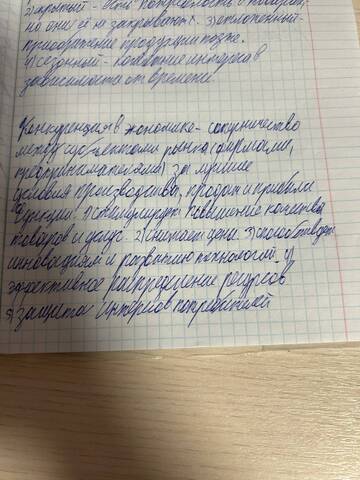 2) скрытый - есть потребность в товарах,
но они её не закрывают. 3) отложенный-
приобретение продукции позже.
4) сезонный -
зависимости от времени
Конкуренция в экономике - соперничество
между субъектами рынка (фирмами,
предпринимателями) за лучшие
условия производства, продаж и прибыли
Функции: 1) стимулирует повышение качества
товаров и услуг. 2) снижает цены 3) способствует
инновациям и развитию технологий. 4)
эффективное распределение ресурсов
5) защита интересов потребителей